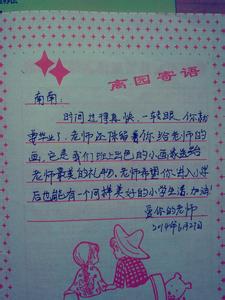 离园寄语
南南:
时间过得真快,一转眼你就
要毕业了,老师还保留着你给老师的
画,它是我们班上出色的小画家送给
老师最美的礼物,老师希望你进入小学
后也能有一个同样美好的小学生活,加油!
爱你的老师
2014年6月27日